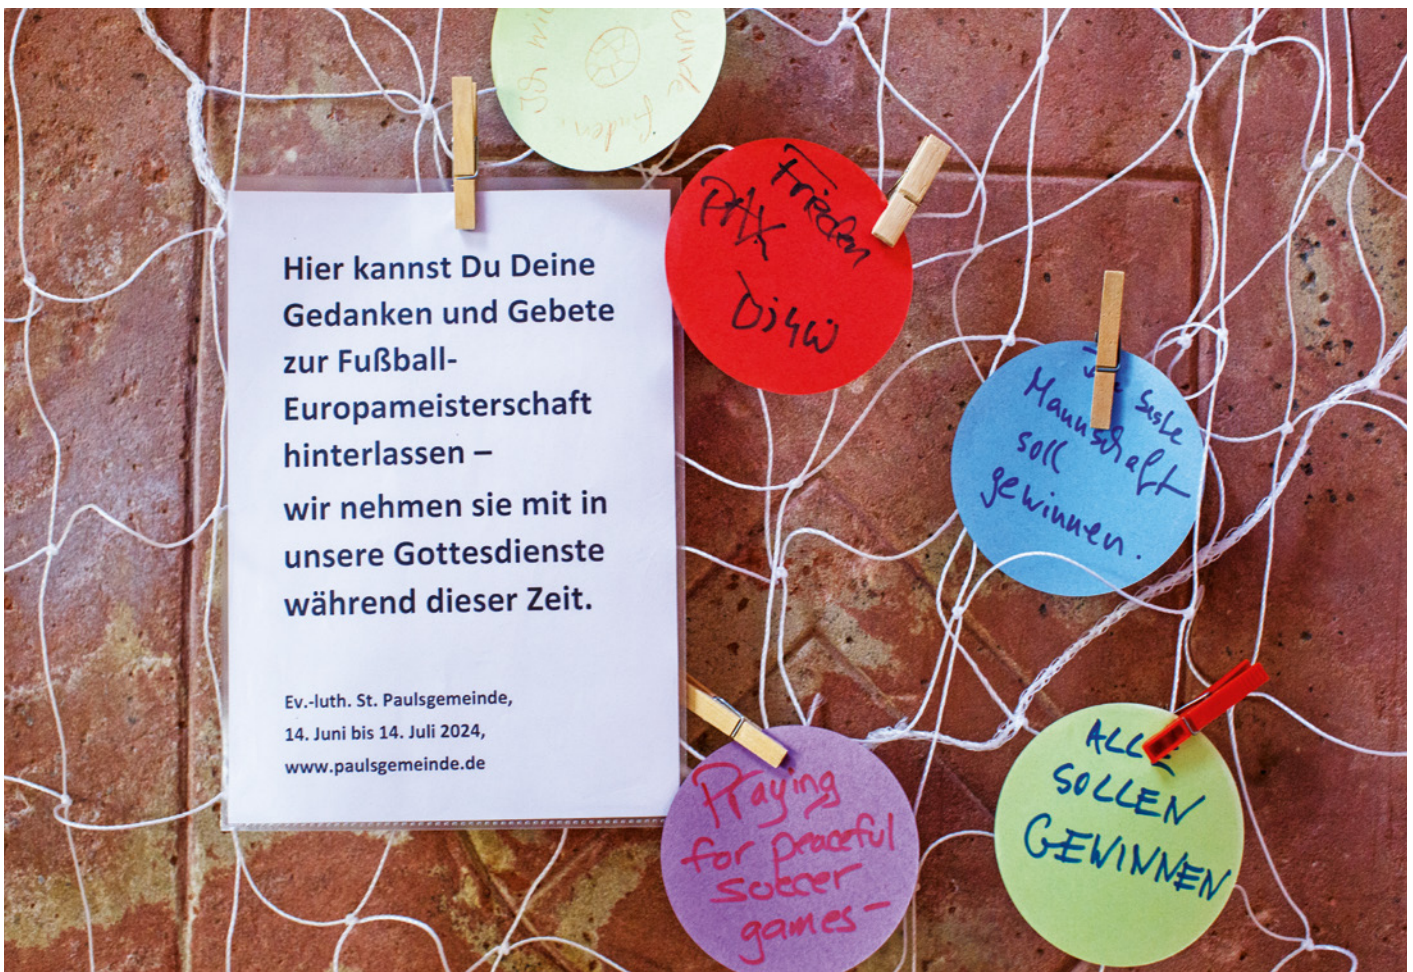 Hier kannst Du Deine
Gedanken und Gebete
zur Fußball-
Europameisterschaft
hinterlassen –
wir nehmen sie mit in
unsere Gottesdienste
während dieser Zeit.
Ev.-luth. St. Paulsgemeinde,
14. Juni bis 14. Juli 2024,
www.paulsgemeinde.de
finden
Frieden
PAX
Mannschaft
soll
gewinnen.
Praying
for peaceful
soccer
games–
ALLE
SOLLEN
GEWINNEN